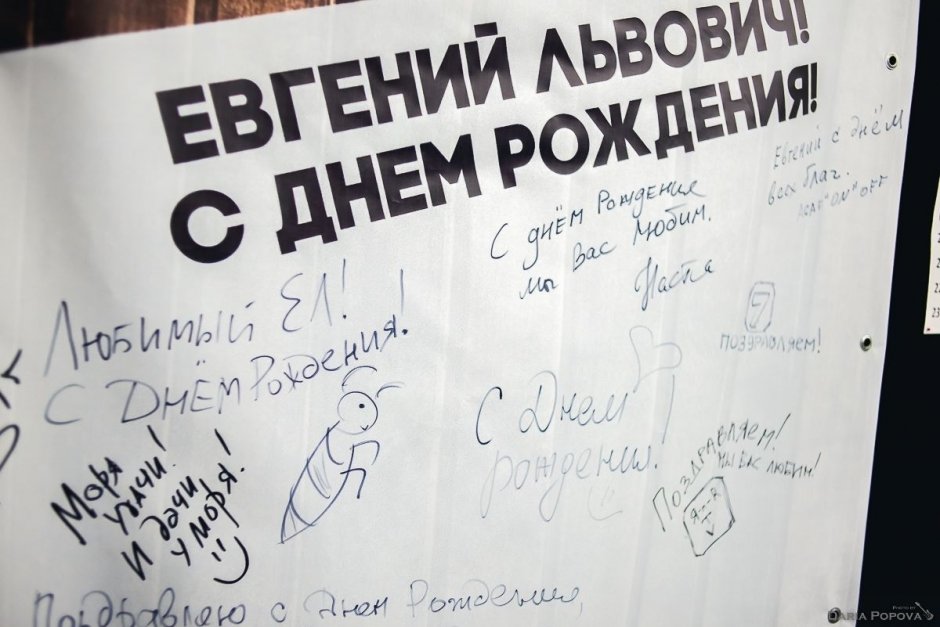 ЕВГЕНИЙ ЛЬВОВИЧ!
С ДНЕМ РОЖДЕНИЯ!
Евгений с днём
всех благ.
"ON" OFF
С днём Рождения
мы Вас Любим.
Настя
Любимый ЕЛ!
С Днём Рождения!
7
ПОЗДРАВЛЯЕМ!
Моря
удачи!
И дачи
у моря!
С Днем
рождения!
ПОЗДРАВЛЯЕМ!
МЫ ВАС ЛЮБИМ!
Поздравляю с Днем Рождения,
PHOTO BY
DARIA POPOVA